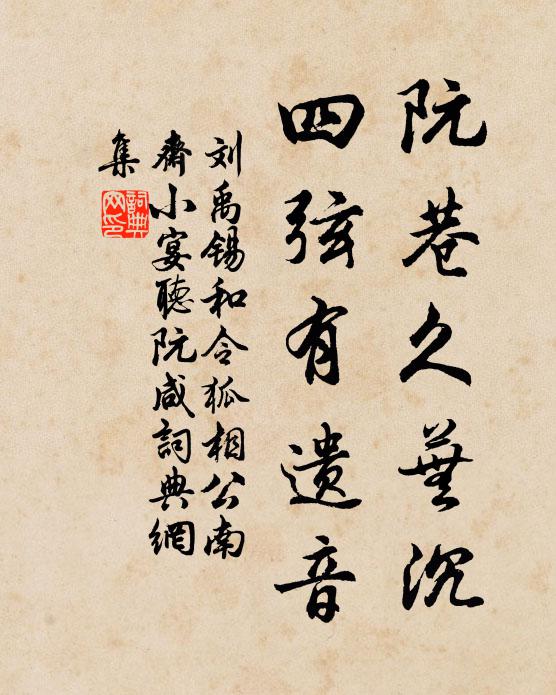 阮巷久蕪沉
四弦有遗音
刘禹锡和令狐相公南
齋小宴聽阮咸詞典網
集
詞典網印